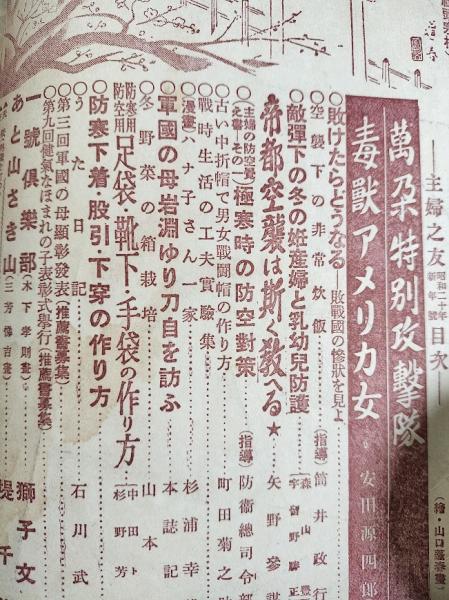 主婦之友 昭和二十年新年號 目次
(繪・山口蓬春畫)
萬朶特別攻擊隊
毒獸アメリカ女 安田源四郎
○敗けたらどうなる―敗戰國の慘狀を見よ
○空襲下の非常炊飯 (指導) 筒井政行
○敵彈下の冬の姙産婦と乳幼兒防護
帝都空襲は斯く敎へる★ 矢野參謀
(主婦の防空覺え書・その二) 極寒時の防空對策 (指導) 防衞總司令部
○古い中折帽で男女戰鬪帽の作り方 町田菊之
○戰時生活の工夫實驗集
○(漫畫) ハナ子さん一家 杉浦幸
軍國の母岩淵ゆり刀自を訪ふ 本誌記
○冬野菜の箱栽培 山本
防寒用防空用 足袋・靴下・手袋の作り方 中田 杉野芳
防寒下着股引下穿の作り方
○うた日記 石川武
○第三回軍國の母顯彰發表(推薦書募集)
○第九回健氣なほまれの子表彰式擧行(推薦書募集)
一號俱樂部(木下孝則畫) 獅子文
あと山さき山(三芳悌吉畫) 堤千